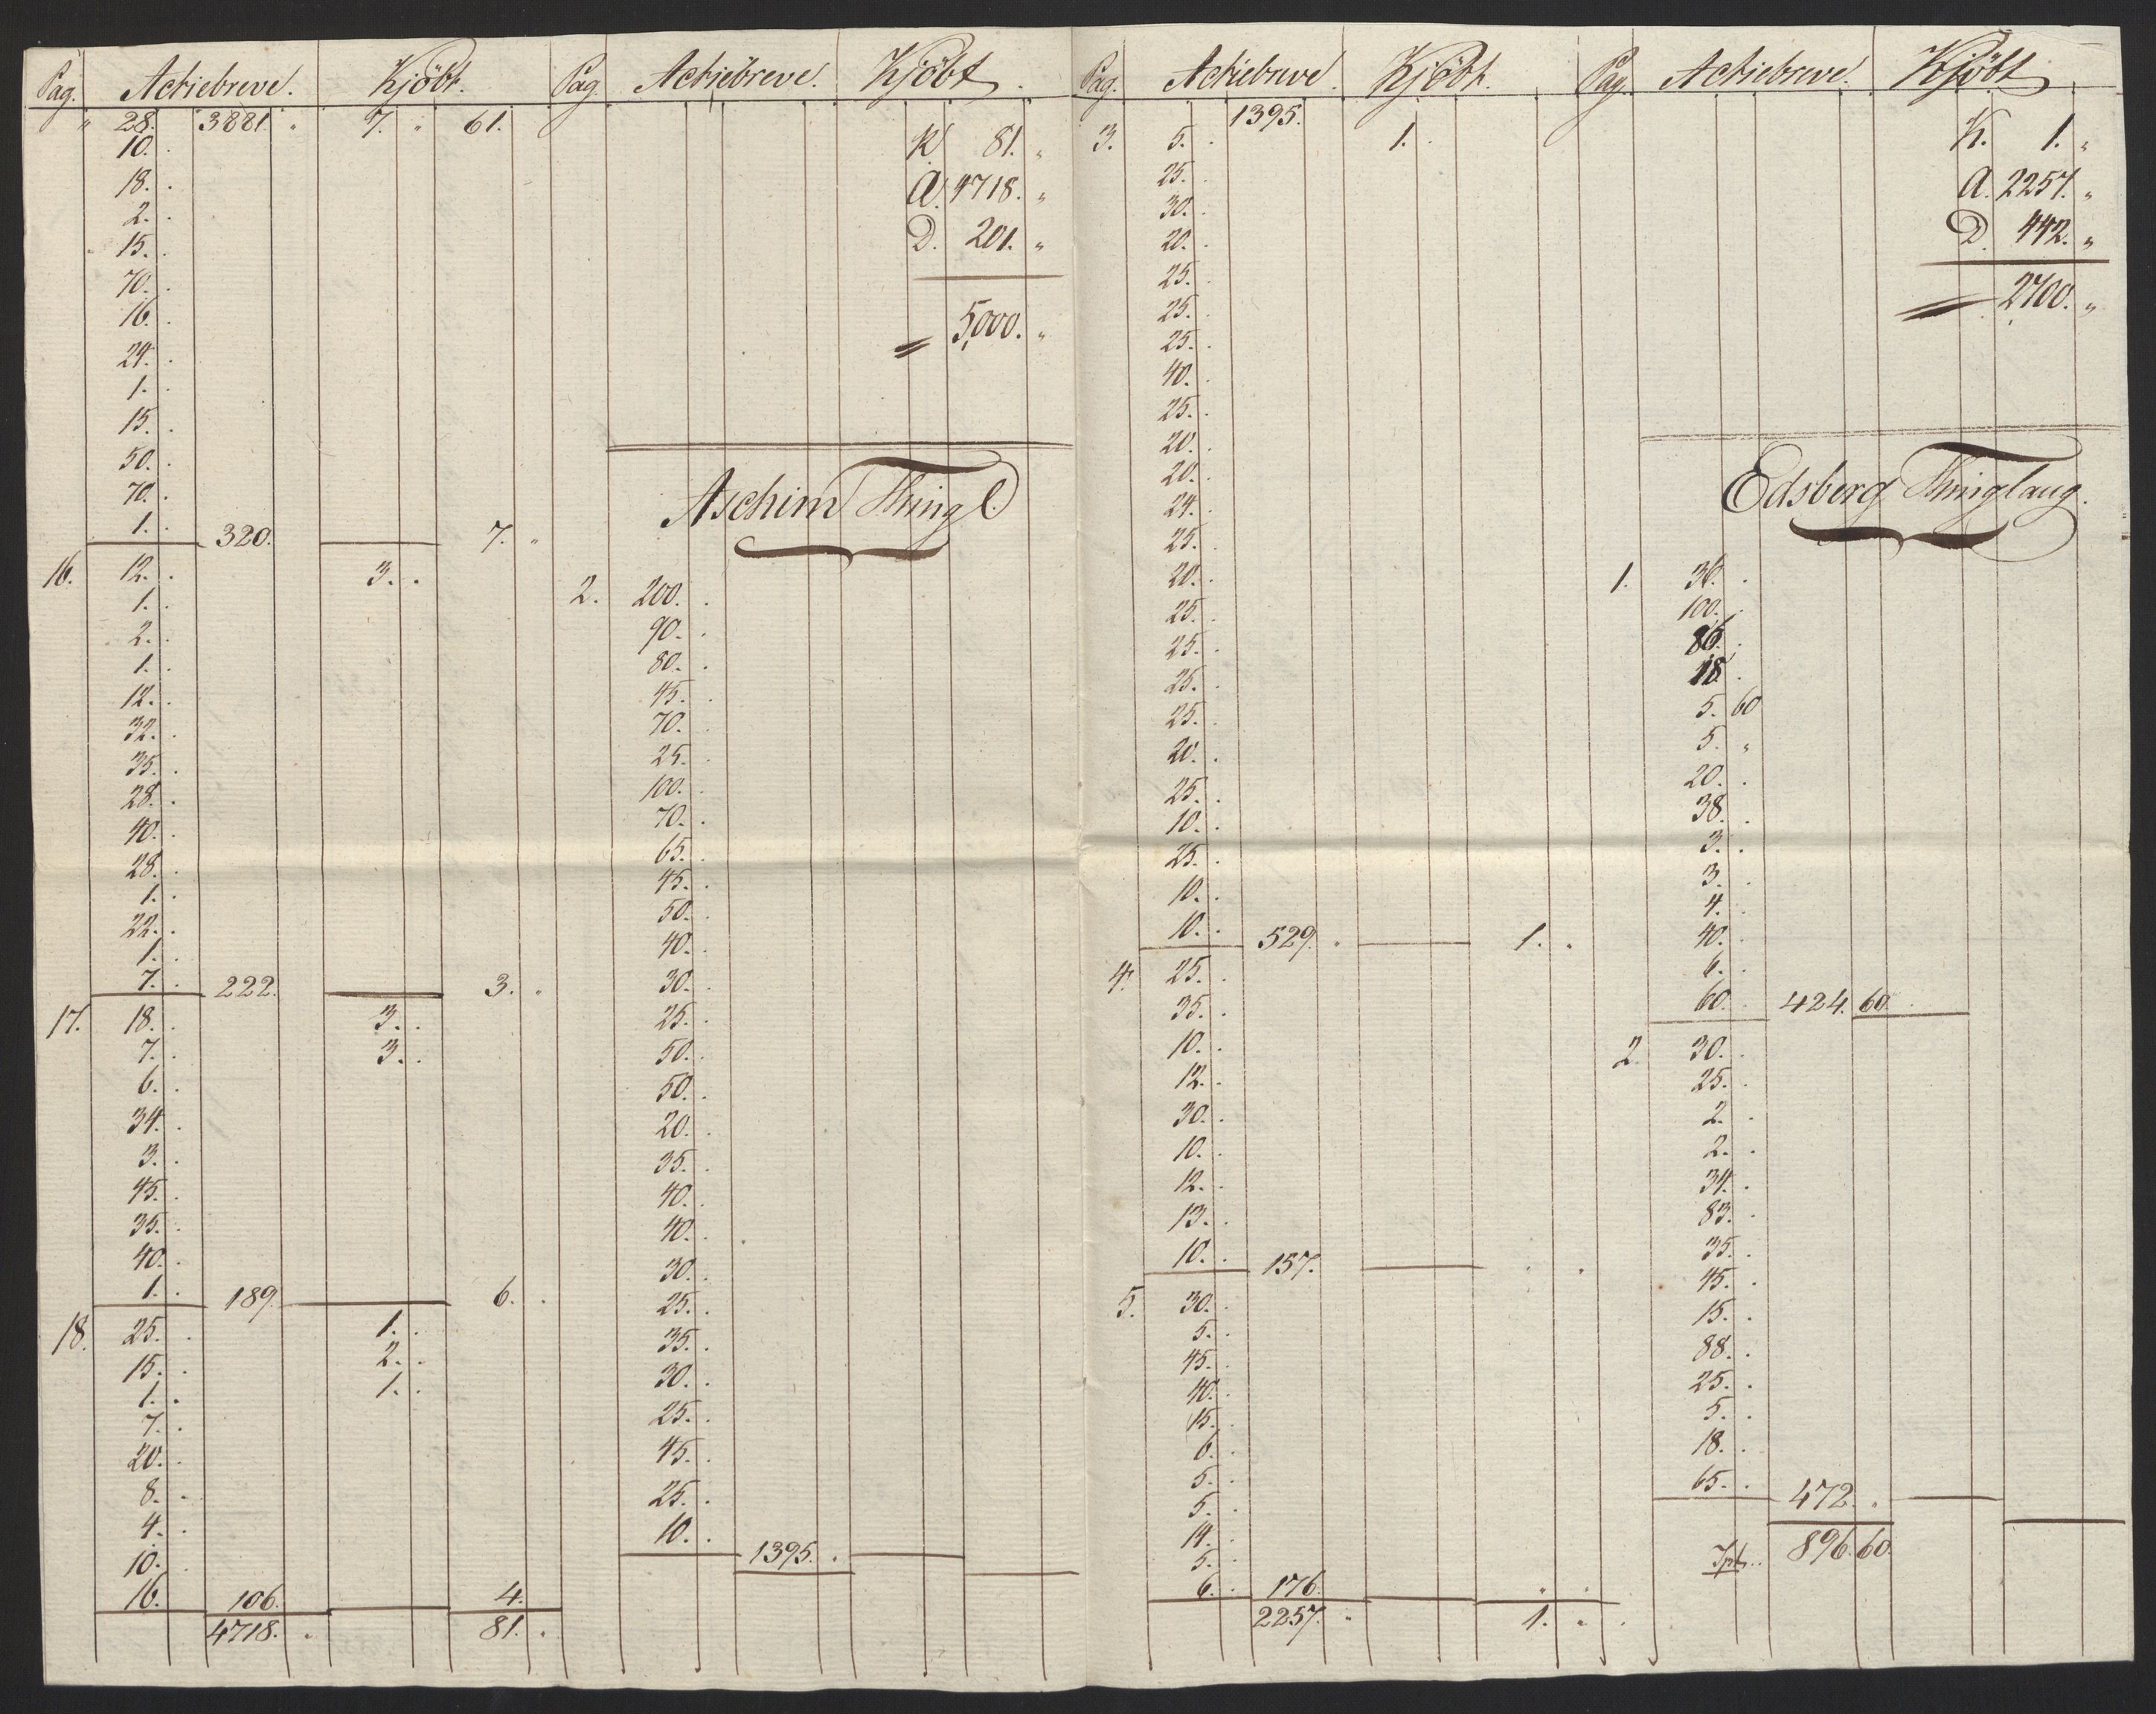 Pag. Actiebreve. Kjöbt.
" 28. 3881. " 7. " 61.
10. .
18. .
2. .
15. .
70. .
16. .
24. .
1. .
15. .
50. .
70. .
1. . 320. 7. "
16. 12. . 3. .
1. .
2. .
1. .
12. .
32. .
35. .
28. .
40. .
28. .
1. .
22. .
1. .
7. . 222. 3. .
17. 18. . 3. .
7. . 3. .
6. .
34. .
3. .
45. .
35. .
40. .
1. . 189. 6. .
18. 25. . 1. .
15. . 2. .
1. . 1. .
7. .
20. .
8. .
4. .
10. .
16. 106. 4.
4718. . 81. .
Pag. Actiebreve. Kjöbt.
K. 81. "
A. 4718. "
D. 201. "
= 5,000. "
Aschim Thingl.
2. 200. .
90. .
80. .
45. .
70. .
25. .
100. .
70. .
65. .
45. .
50. .
40. .
30. .
25. .
50. .
50. .
20. .
35. .
40. .
40. .
30. .
25. .
35. .
30. .
25. .
45. .
25. .
10. . 1395. .
Pag. Actiebreve Kjöbt.
1395.
3. 5. . 1. .
25. .
30. .
20. .
25. .
25. .
25. .
40. .
25. .
20. .
20. .
24. .
25. .
20. .
25. .
25. .
25. .
25. .
20. .
25. .
10. .
25. .
10. .
10. . 529. . 1. .
4. 25. .
35. .
10. .
12. .
30. .
10. .
12. .
13. .
10. . 157. . .
5. 30. .
5. .
45. .
40. .
15. .
6. .
5. .
5. .
14. .
5. .
6. . 176. . .
2257. " 1. " .
Pag. Actiebreve. Kjöbt
K. 1. "
A. 2257. "
D. 442. "
= 2,700. "
Edsberg Thinglaug.
1. 36. .
100. .
86. .
18 .
5. 60
5. "
20. .
38. .
3. .
3. .
4. .
40. .
6. .
60. . 424. 60.
2. 30. .
25. .
2. .
2. .
34. .
83. .
35. .
45. .
15. .
88. .
25. .
5. .
18. .
65. . 472. .
896. 60.